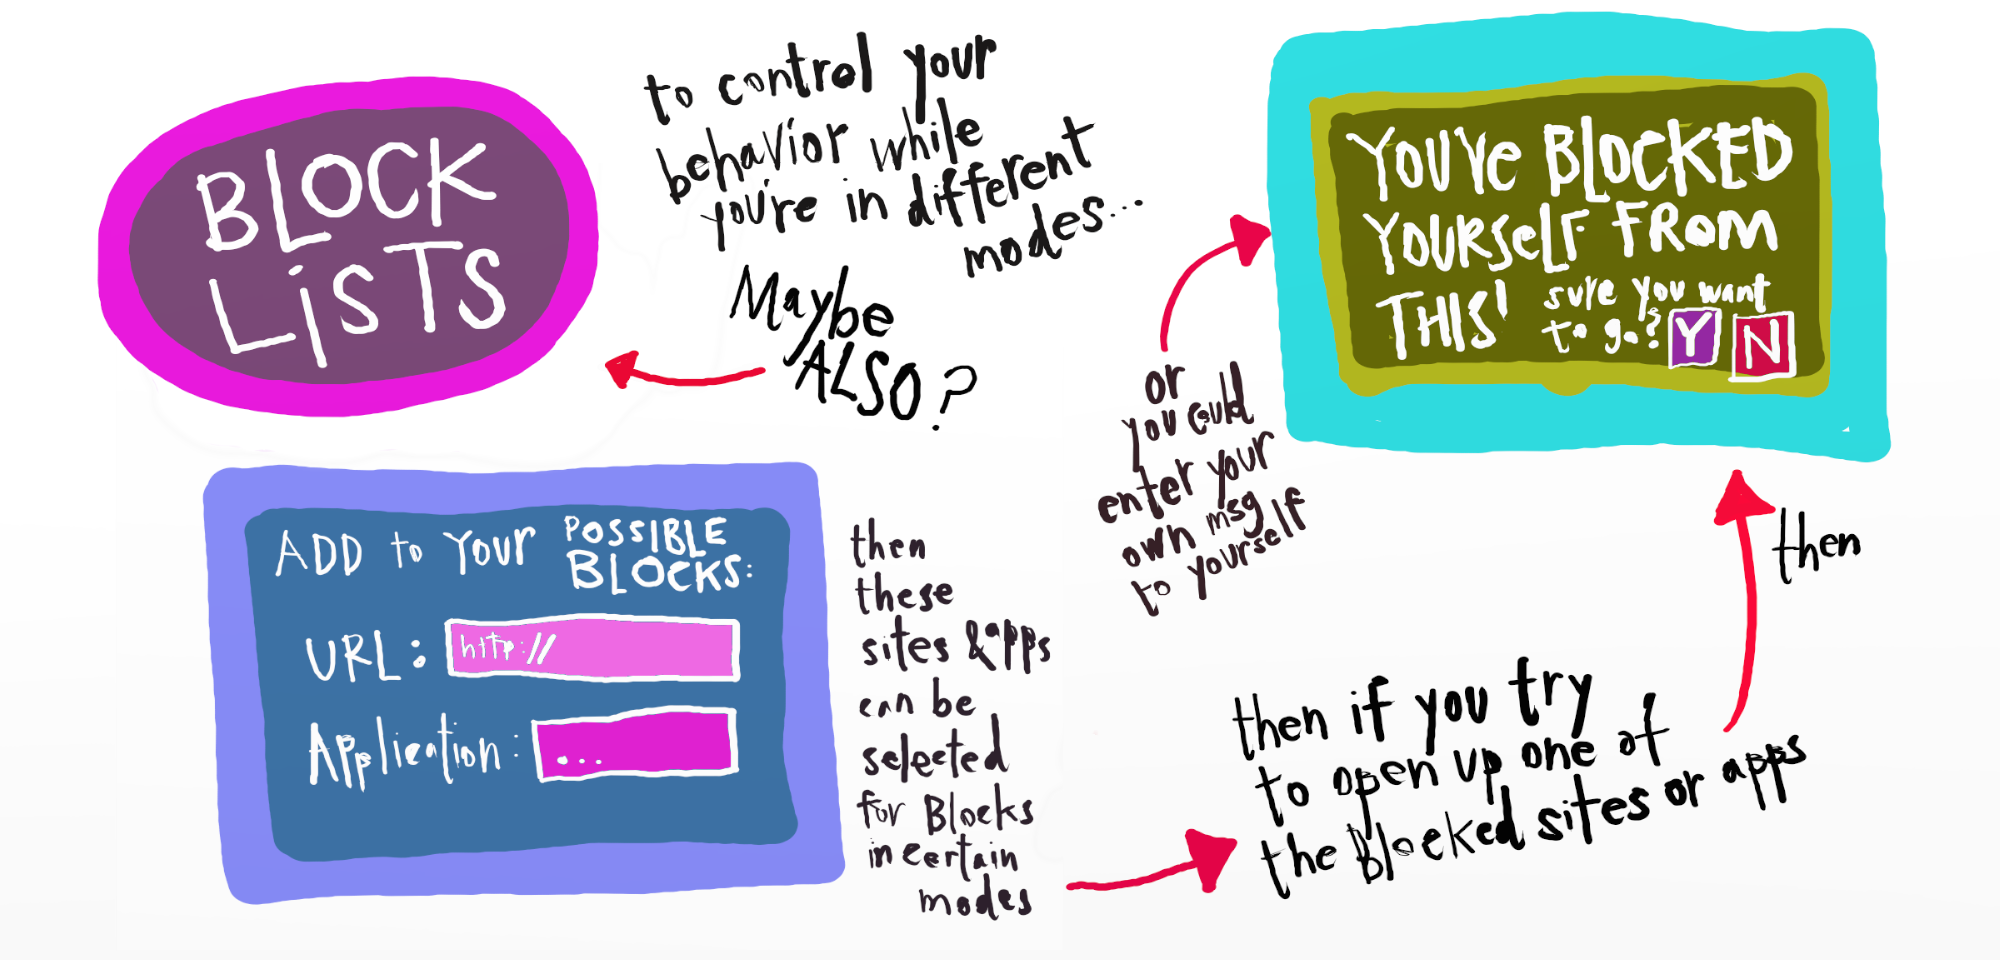 BLOCK
LiSTS
to control your
behavior while
you're in different
modes...
Maybe
ALSO?
ADD to Your POSSIBLE
BLOCKS:
URL: http://
Application: ...
then
these
sites & apps
can be
selected
for Blocks
in certain
modes
then if you try
to open up one of
the Blocked sites or apps
then
YOU'VE BLOCKED
YOURSELF FROM
THIS! sure you want
to go? Y N
or
you could
enter your
own msg
to yourself